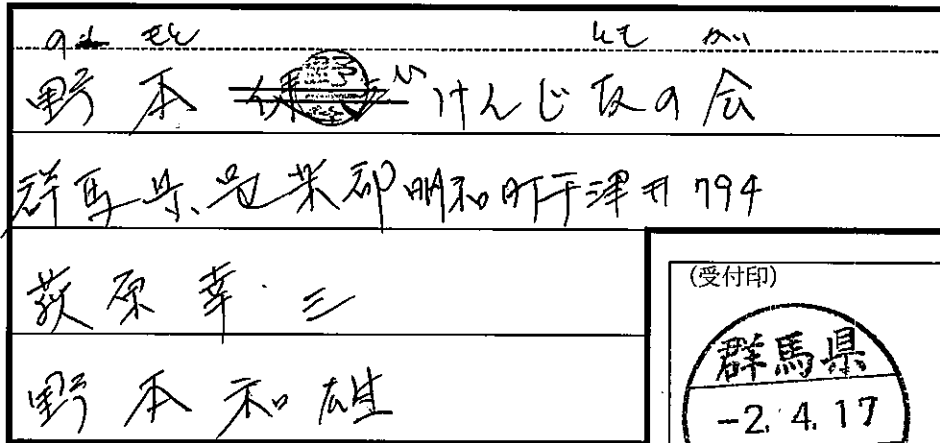 のもと とも かい
野本 けんじ友の会
群馬県邑楽郡明和町千津井794
荻原幸三
野本和雄
(受付印)
群馬県
-2.4.17